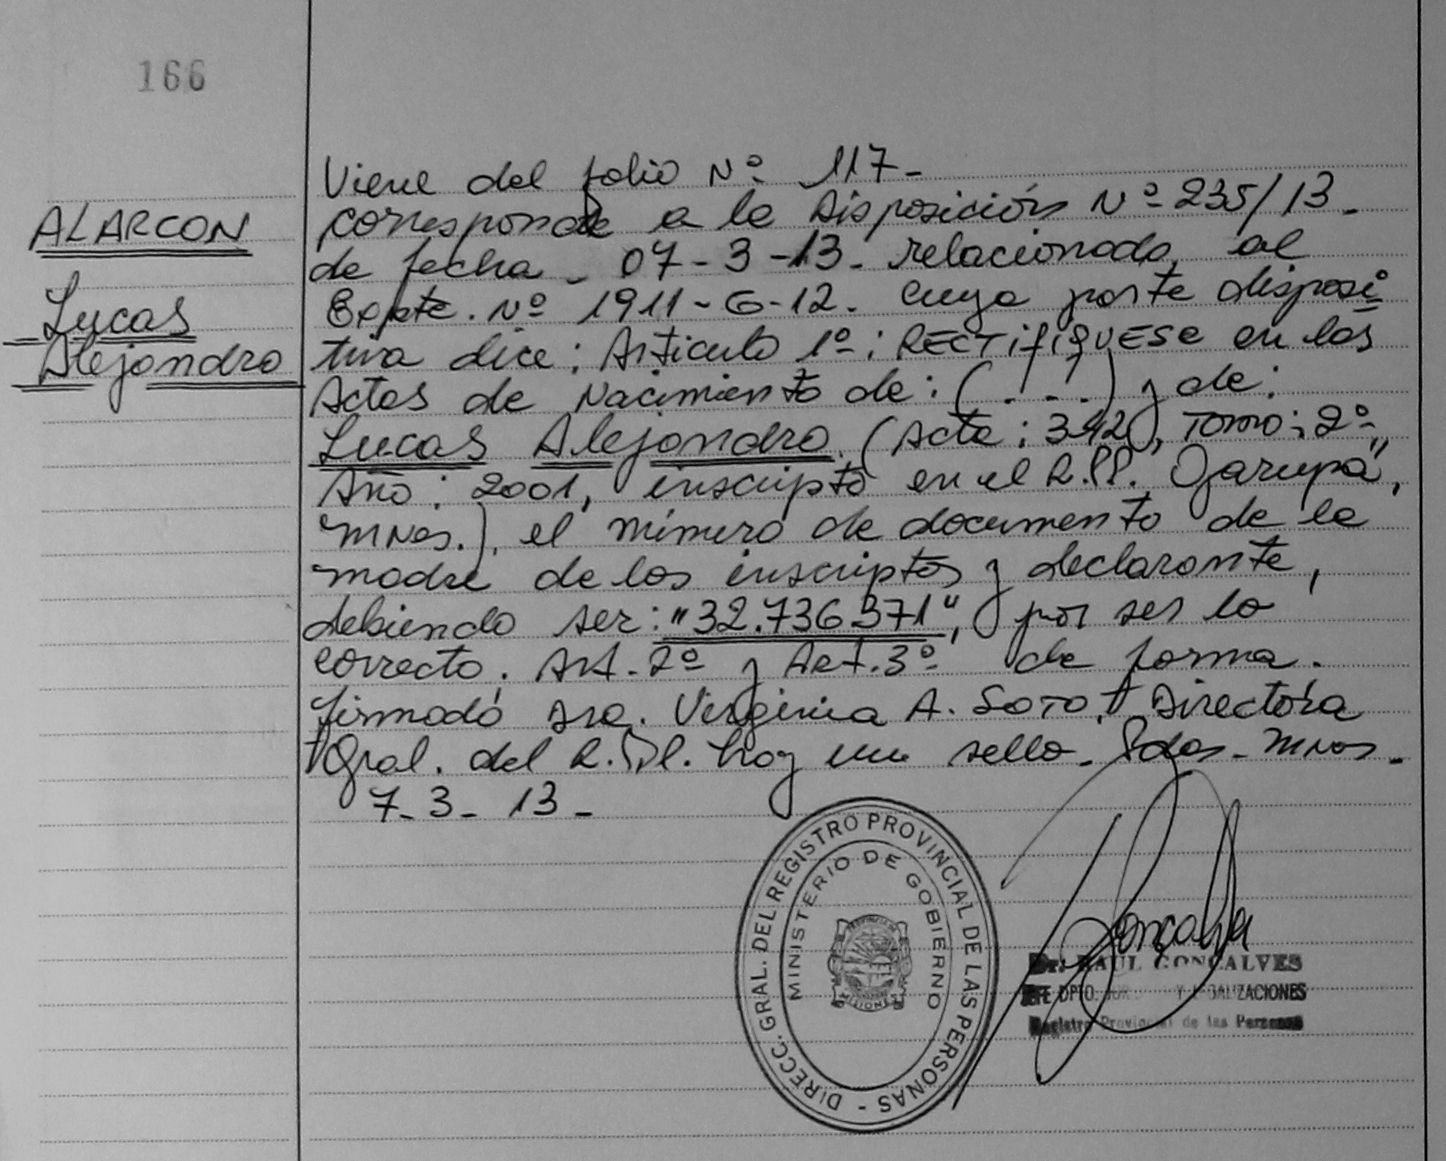 166
ALARCON
Lucas
Alejandro
Viene del folio Nº 117-
corresponde a la Disposición Nº 235/13-
de fecha - 07-3-13- relacionada al
Expte. Nº 1911-G-12. cuya parte disposi
tiva dice: Articulo 1º: RECTIFIQUESE en las
Actas de Nacimiento de: (. . . .) y de:
Lucas Alejandro (Acta: 392, Tomo: 2º,
Año: 2001, inscripto en el R.P.P. Garupá",
Mnes.), el número de documento de la
madre de los inscriptos y declarante,
debiendo ser: "32.736.371", por ser lo
correcto. Art. 2º y Art. 3º de forma.
firmado Sra. Virginia A. SOTO. Directora
Gral. del R.P.P. hay un sello- Pdas- Mnes-
7-3-13-
DIRECC. GRAL. DEL REGISTRO PROVINCIAL DE LAS PERSONAS -
MINISTERIO DE GOBIERNO
MISIONES
Dr. RAUL GONCALVES
JEFE DPTO. Y LEGALIZACIONES
Registro Provincial de las Personas